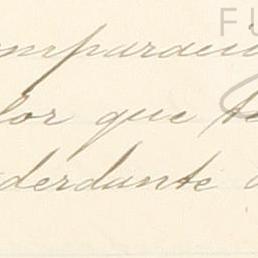 FU
omparació
lor que te
derdante